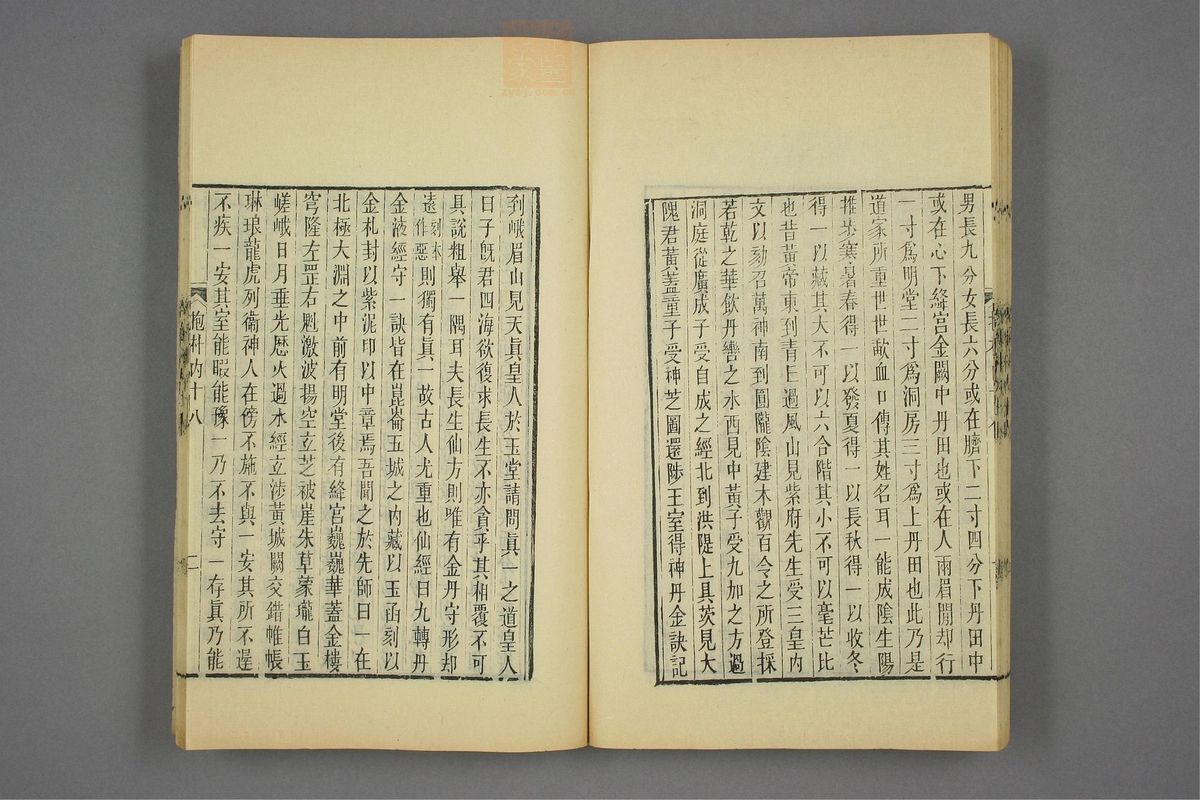 男長九分女長六分或在臍下二寸四分下丹田中
或在心下絳宮金闕中丹田也或在人兩眉閒却行
一寸爲明堂二寸爲洞房三寸爲上丹田也此乃是
道家所重世世歃血口傳其姓名耳一能成陰生陽
推步寒暑春得一以發夏得一以長秋得一以收冬
得一以藏其大不可以六合階其小不可以毫芒比
也昔黃帝東到青丘過風山見紫府先生受三皇內
文以劾召萬神南到圓隴陰建木觀百令之所登採
若乾之華飲丹巒之水西見中黃子受九加之方過
洞庭從廣成子受自成之經北到洪隄上具茨見大
隗君黃蓋童子受神芝圖還陟王室得神丹金訣記
到峨眉山見天眞皇人於玉堂請問眞一之道皇人
曰子旣君四海欲復求長生不亦貪乎其相覆不可
具說粗舉一隅耳夫長生仙方則唯有金丹守形却
逺刻本作惡則獨有眞一故古人尤重也仙經曰九轉丹
金液經守一訣皆在崑崙五城之內藏以玉函刻以
金札封以紫泥印以中章焉吾聞之於先師曰一在
北極大淵之中前有明堂後有絳宮巍巍華蓋金樓
穹隆左罡右魁激波揚空立芝被崖朱草蒙瓏白玉
嵯峨日月垂光歷火過水經立涉黃城闕交錯帷帳
琳琅龍虎列衞神人在傍不施不與一安其所不遲
不疾一安其室能暇能豫一乃不去守一存眞乃能
抱朴內十八
二